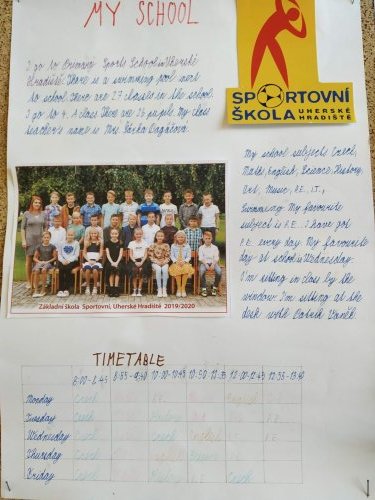 MY SCHOOL
I go to Primary Sports School in Uherské
Hradiště. There is a swimming pool next
to school. There are 27 classes in the school.
I go to 4. A class. There are 26 pupils. My class
teacher's name is Mrs. Šárka
SPORTOVNÍ
ŠKOLA UHERSKÉ
HRADIŠTĚ
My school subjects Czech,
Maths, English, Science, History,
Art, Music, P.E., I.T.,
Swimming. My favourite
subject is P.E. I have got
P.E. every day. My favourite
day at school is Wednesday.
I'm sitting in class by the
window. I'm sitting at the
desk with
Základní škola Sportovní, Uherské Hradiště 2019/2020
TIMETABLE
8:00-8:45 8:55-9:40 10:00-10:45 10:50-11:35 12:00-12:45 12:55-13:40
Monday Czech P.E. English
Tuesday Czech
Wednesday Czech English P.E.
Thursday Czech
Friday Czech Czech